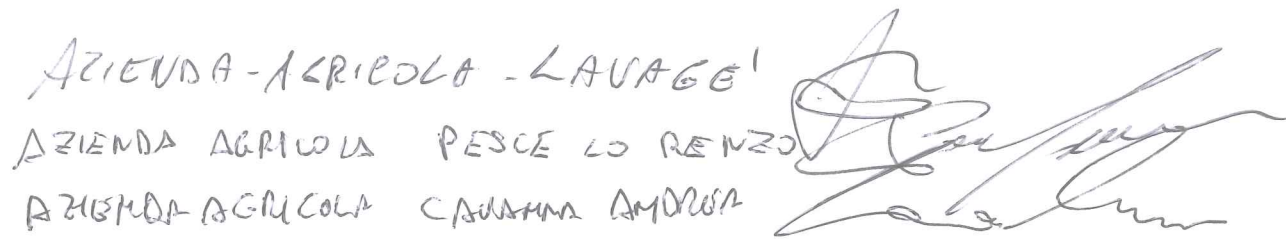 AZIENDA-AGRICOLA-LAVAGE'
AZIENDA AGRICOLA PESCE LORENZO
AZIENDA AGRICOLA CAVANNA ANDREA